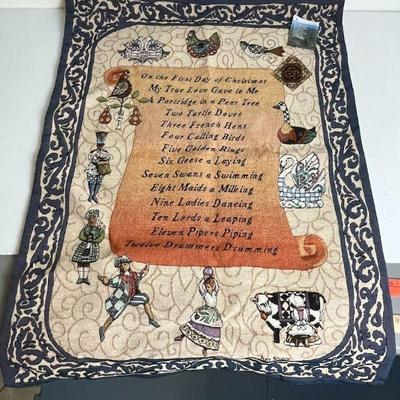 On the First Day of Christmas
My True Love Gave to Me
A Partridge in a Pear Tree
Two Turtle Doves
Three French Hens
Four Calling Birds
Five Golden Rings
Six Geese a Laying
Seven Swans a Swimming
Eight Maids a Milking
Nine Ladies Dancing
Ten Lords a Leaping
Eleven Pipers Piping
Twelve Drummers Drumming